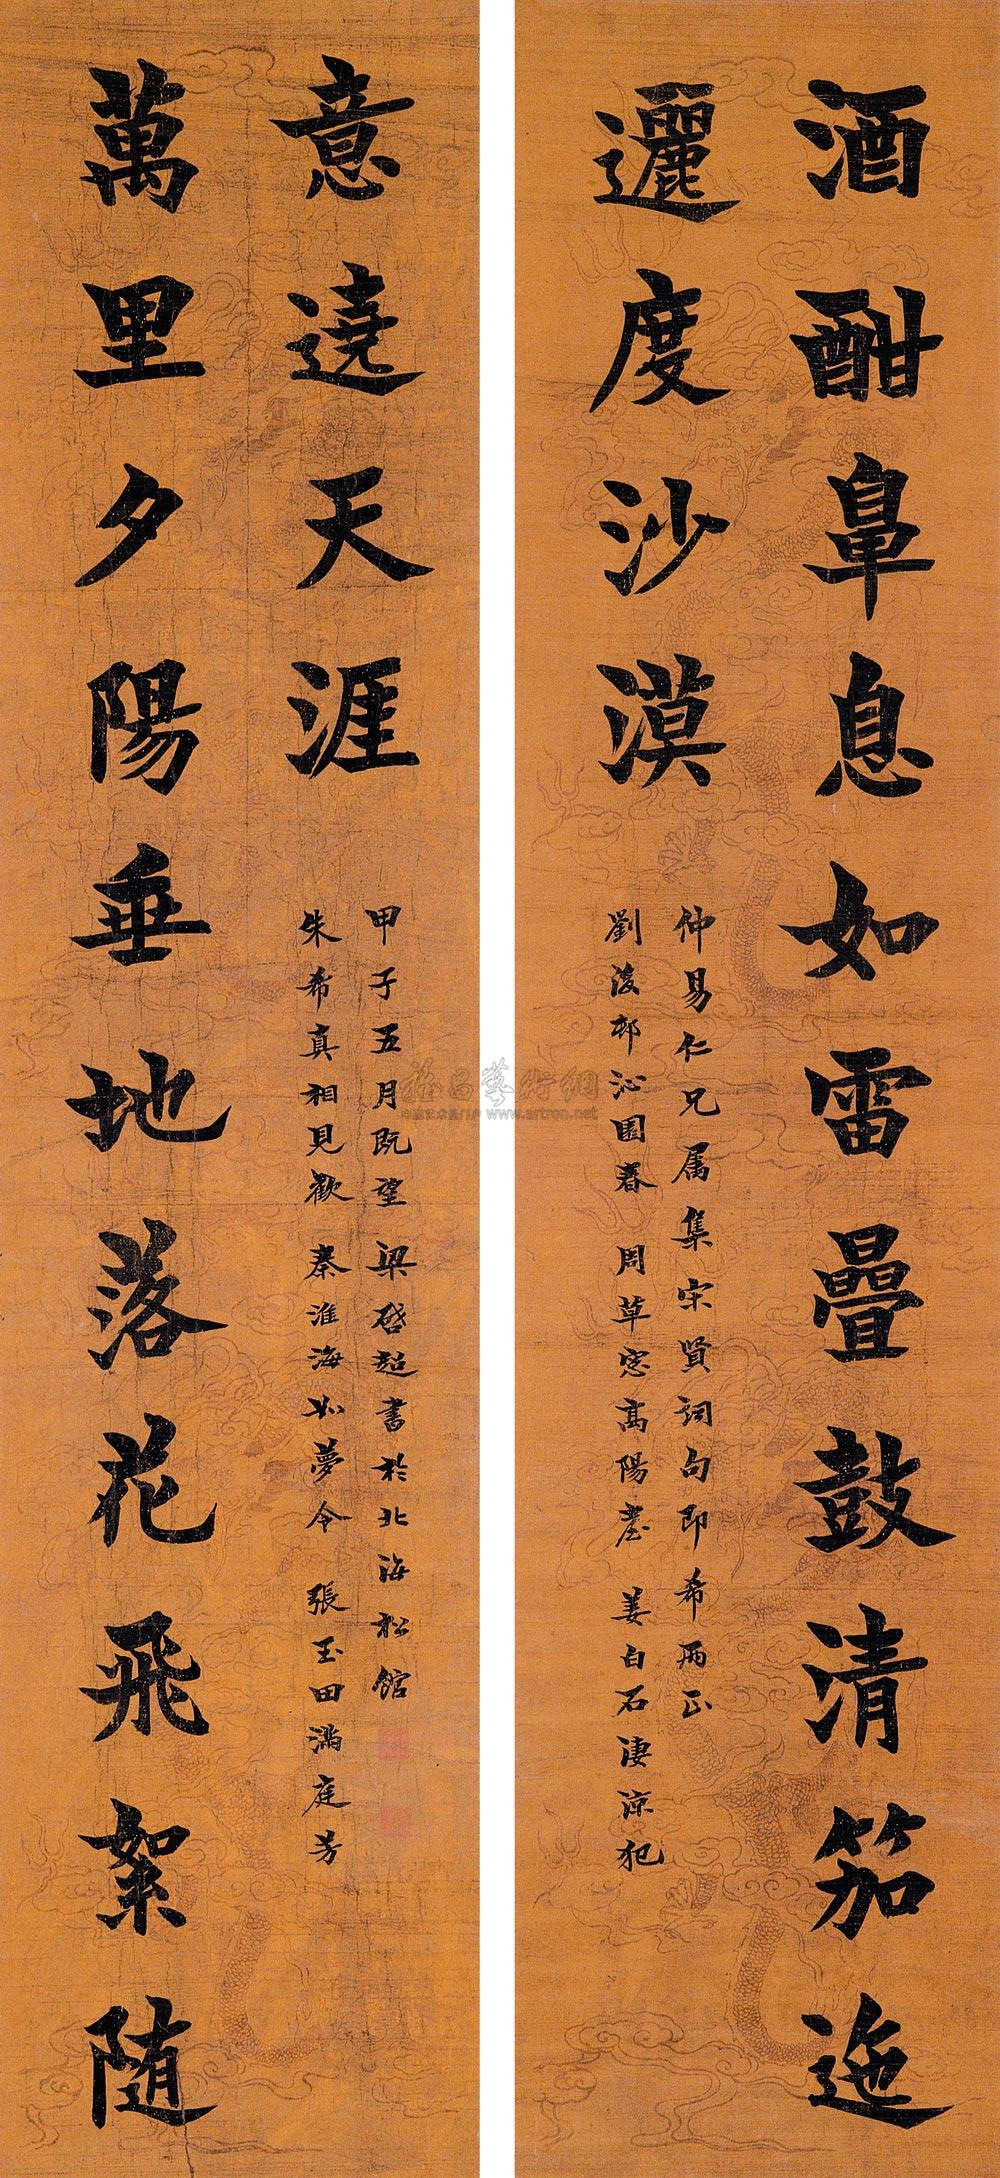 酒酣鼻息如雷疊鼓清笳迤
邐度沙漠
仲易仁兄属集宋賢詞句即希两正
劉後邨沁園春 周草窓高陽臺 姜白石淒涼犯
萬里夕陽垂地落花飛絮随
意遶天涯
朱希真相見歡 秦淮海如夢令 張玉田滿庭芳
甲子五月既望梁啓超書於北海松館
雅昌藝術網
www.artron.net